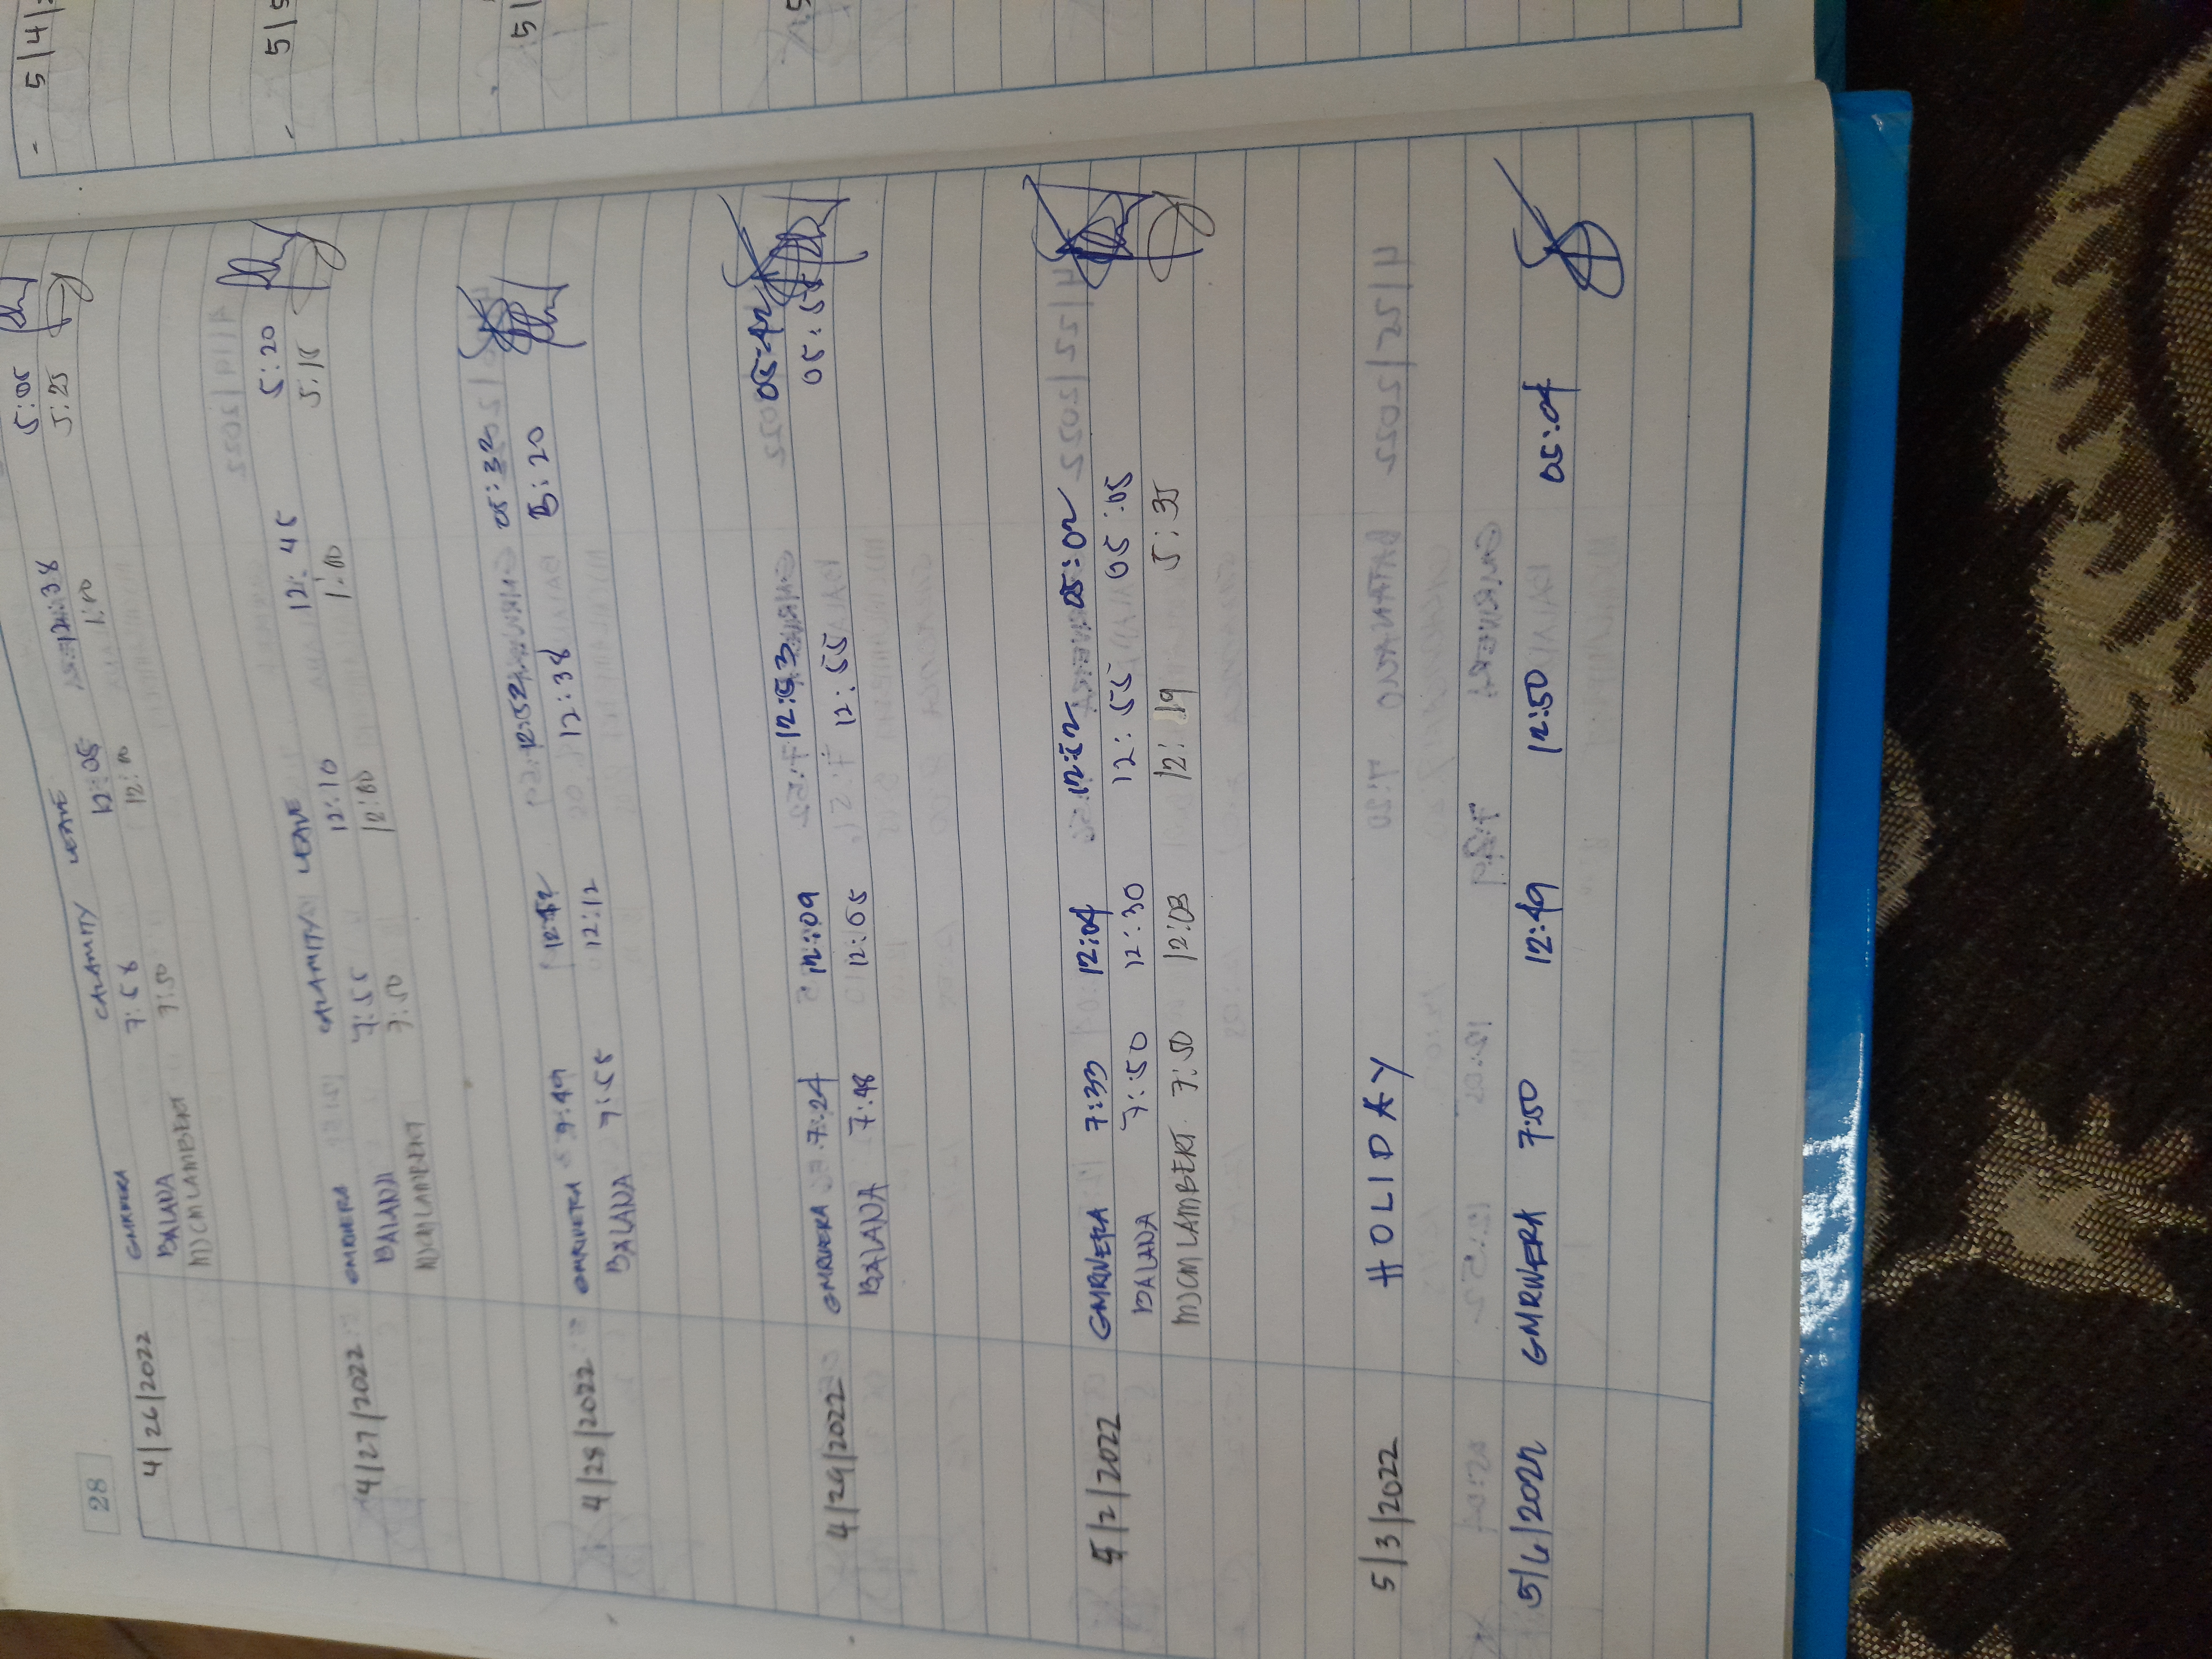 28
4/26/2022 GMRIVERA CALAMITY LEAVE
BALANA 7:58 12:05 12:38 5:05
MJCMLAMBERT 7:50 12:10 1:00 5:25
4/27/2022 GMRIVERA CALAMITY LEAVE
BALANA 7:55 12:10 12:45 5:20
MJCMLAMBERT 7:50 12:00 1:00 5:15
4/28/2022 GMRIVERA 7:49 12:32 05:32
BALANA 7:55 12:12 12:38 5:20
4/29/2022 GMRIVERA 7:24 12:09 12:53 05:42
BALANA 7:48 12:05 12:55 05:55
5/2/2022 GMRIVERA 7:33 12:04 12:12 05:02
BALANA 7:50 12:30 12:55 05:05
MJCMLAMBERT 7:50 12:03 12:19 5:35
5/3/2022 HOLIDAY
GMRIVERA 7:50 12:49 12:50 05:04